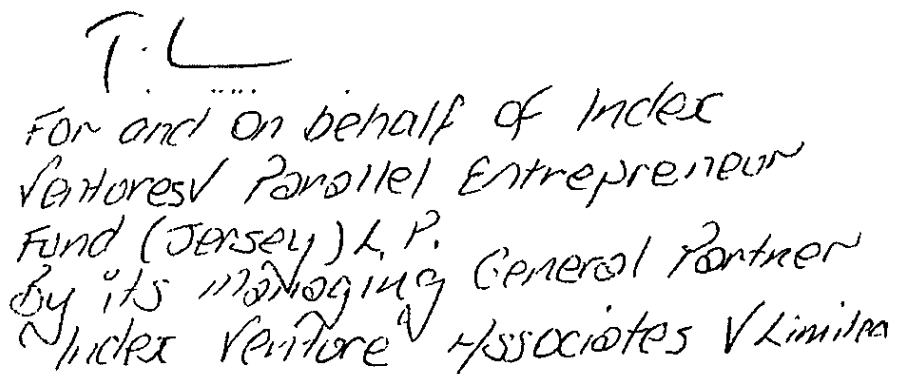 T. L
For and on behalf of Index
Ventures V Parallel Entrepreneur
Fund (Jersey) L.P.
By its managing General Partner
Index Venture Associates V Limited